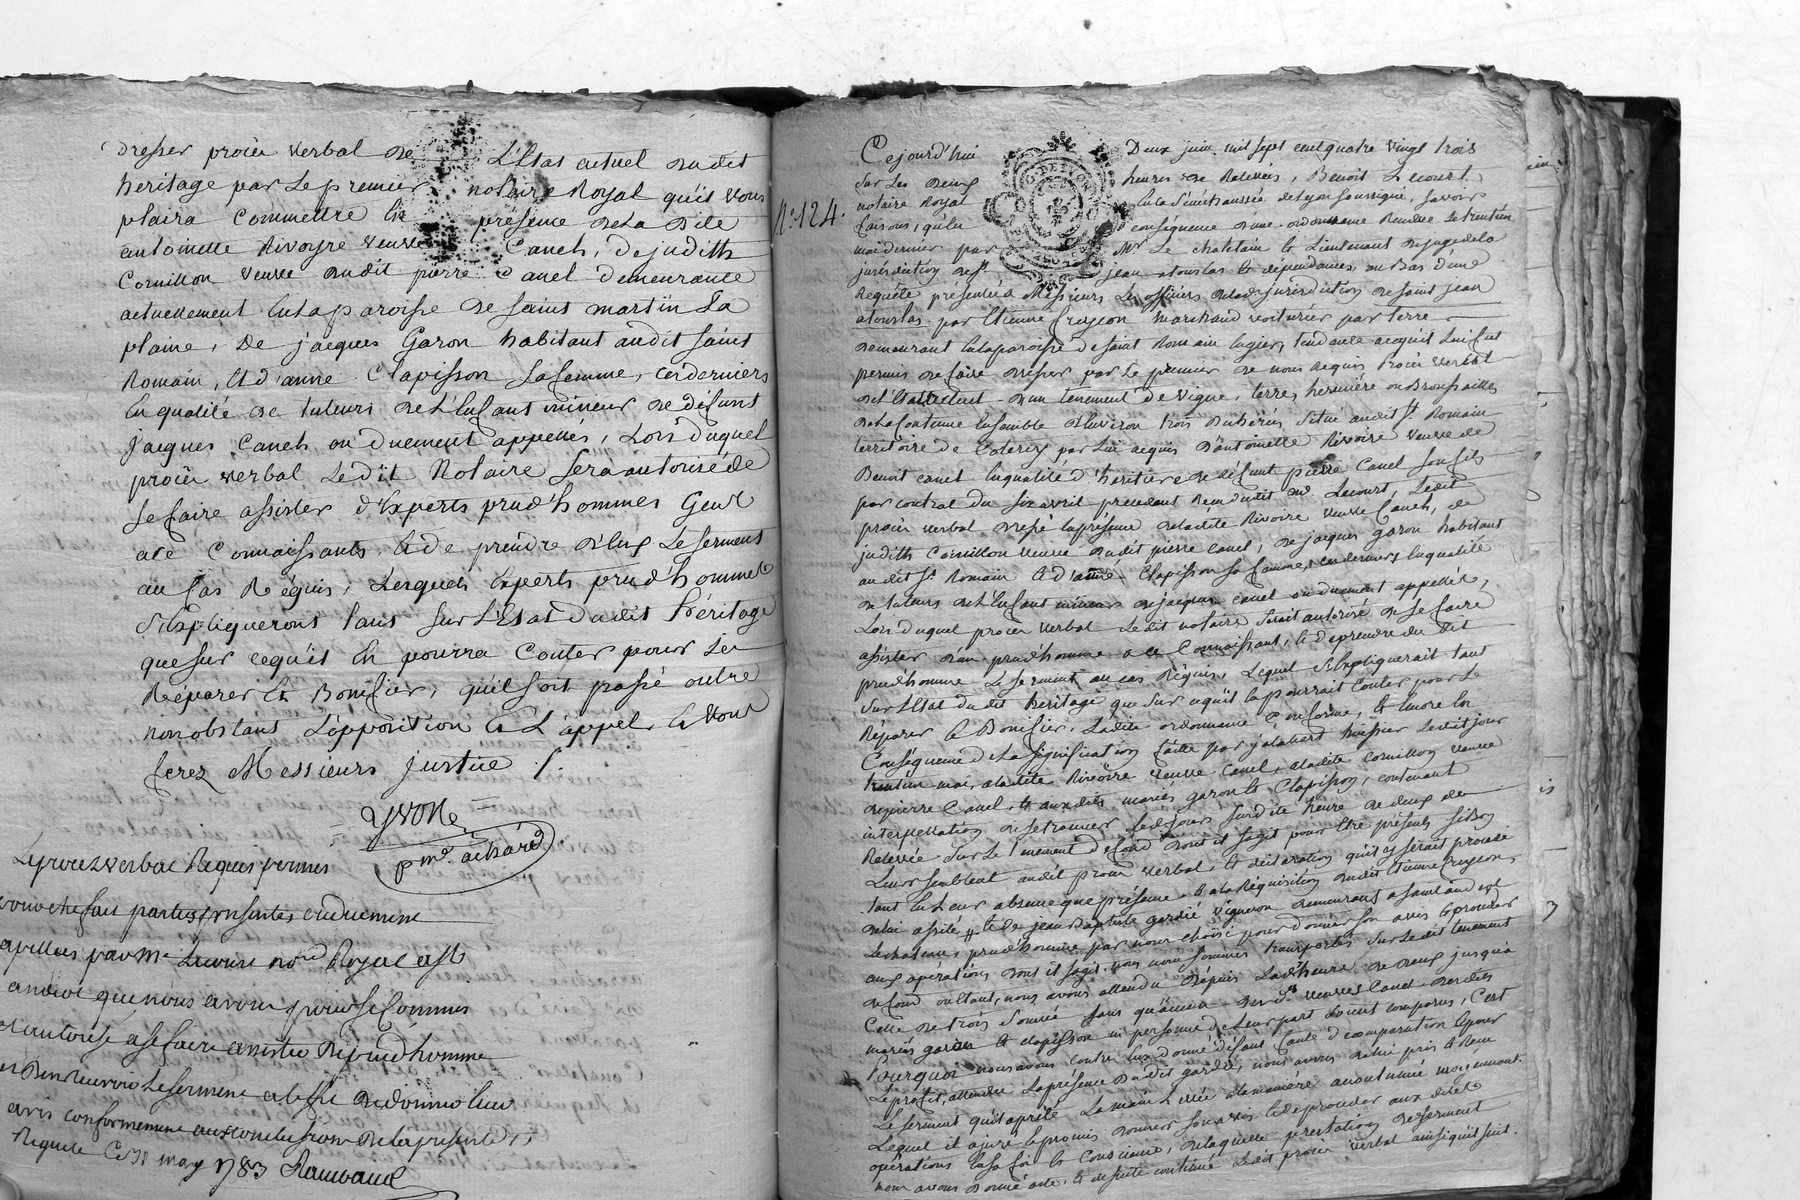 Dresser procès verbal de L'Etat actuel dudit
heritage par Le premier notaire Royal qu'il vous
plaira commettre En présence de La Dite
antoinette Rivoyre veuve Canel, de judith
Cornillon veuve dudit pierre Canel demeurante
actuellement En la paroisse de saint martin La
plaine, De jacques Garon habitant audit saint
Romain, Et d'anne Clapisson sa femme, ces derniers
En qualité de tuteurs de L'Enfant mineur de défunt
jacques Canel, ou duement appellés, Lors duquel
procès verbal Ledit Notaire sera autorisé de
se faire assister d'Experts prud'hommes Gens
à ce Connaissants, Et de prendre d'Eux Le serment
au Cas Requis, Lesquels Experts prud'hommes
s'Expliqueront tant sur L'Etat dudit heritage
que sur ce qu'il En pourra Couter pour Le
Réparer Et Bonifier, qu'il soit passé outre
nonobstant L'opposition Et L'appel, Et vous
ferez Messieurs justice ./.
yvon
pmd. achard
Le procez verbal Requis permis
a être fait parties presentes ou duement
apellées par Me Lecourt not. Royal
androit que nous avons pour ce Commis
et autorisé a se faire assister de prud'homme
et d'En Recevoir Le serment a l'effet de donner leur
avis conformement aux conclusions de la presente
Requete Ce 31 may 1783 Ramvaud
N°. 124.
G. DE LYON
Cejourd'hui Deux juin mil sept cent quatre vingt trois
sur Les deux heures de Relevée, Benoit Lecourt
notaire Royal En la sénéchaussée de Lyon soussigné, savoir
faisons, qu'En conséquence d'une ordonnance Rendue Le trente un
mai dernier par Mr. Le chatelain Et Lieutenant de juge de la
jurisdiction de St. jean atouslas Et dépendances, au Bas d'une
Requête présentée à Messieurs Les officiers de la de jurisdiction de saint jean
atouslas par Etienne Crozeon marchand voiturier par terre
demeurant En la paroisse de saint Romain Engier, tendante acequ'il Lui fut
permis de faire dresser par Le premier de nous Requis Procès verbal
de L'Etat actuel d'un tenement de vigne, terre, hermière ou Broussailles
de la Contenue Ensemble d'Environ trois Bicherées situé audit St. Romain
territoire de Coterey par Lui acquis D'antoinette Rivoire veuve de
Benoit canel En qualité d'heritière de défunt pierre Canel son fils
par contrat du six avril precedent Reçu dudit Me. Lecourt, Ledit
procès verbal dressé En présence de ladite Rivoire veuve Canel, de
judith Cornillon veuve dudit pierre Canel, de jacques garon habitant
audit St. Romain Et d'anne Clapisson sa femme, ces derniers En qualité
de tuteurs de L'Enfant mineur de jacques Canel ou duement appellés,
Lors duquel procès verbal Ledit notaire serait autorisé de se faire
assister d'un prud'homme a ce Connaissant, Et de prendre du dit
prud'homme Le serment au cas Requis, Lequel s'Expliquerait tant
sur L'Etat dudit heritage que sur ce qu'il En pourrait Couter pour Le
Réparer Et Bonifier, Ladite ordonnance Conforme, Et Encore En
Conséquence de La signification faite par jalabert huissier Ledit jour
trente un mai, a Ladite Rivoire veuve Canel, a Ladite Cornillon veuve
de pierre Canel, Et auxdits mariés garon Et Clapisson, contenant
interpellation de se trouver Cedit jour susdite heure de deux de
Relevée sur Le tenement de fond dont il s'agit pour Etre présents si Bon
Leur semblait audit procès verbal, Et déclaration qu'il y serait procédé
tant En Leur absence que présence Et ala Réquisition dudit Etienne Crozeon,
de lui assisté Et de jean Baptiste gardié vigneron demeurant a saint andeol
Le chateau, prud'homme par nous choisi pour donner son avis Et proceder
aux operations dont il s'agit, nous nous sommes transportés sur Ledit tenement
de fond ou Etant, nous avons attendu depuis Ladte. heure de deux jusqu'à
Celle de trois sonnée sans qu'aucun desd. veuves Canel, desdits
mariés garon Et clapisson ni personne de Leur part soient comparus, C'est
Pourquoi nous avons contre Eux donné défaut faute de comparution Et pour
Le profit, attendu La présence Dudit gardié, nous avons de lui pris Et Reçu
Le serment qu'il a prêté La main Levée ala manière accoutumée moyennant
Lequel il a juré Et promis donner son avis Et de proceder aux dites
opérations En sa foi Et Conscience, de laquelle prestation de serment
nous avons Donné acte, Et de suite continué Ledit procès verbal ainsi qu'il suit.